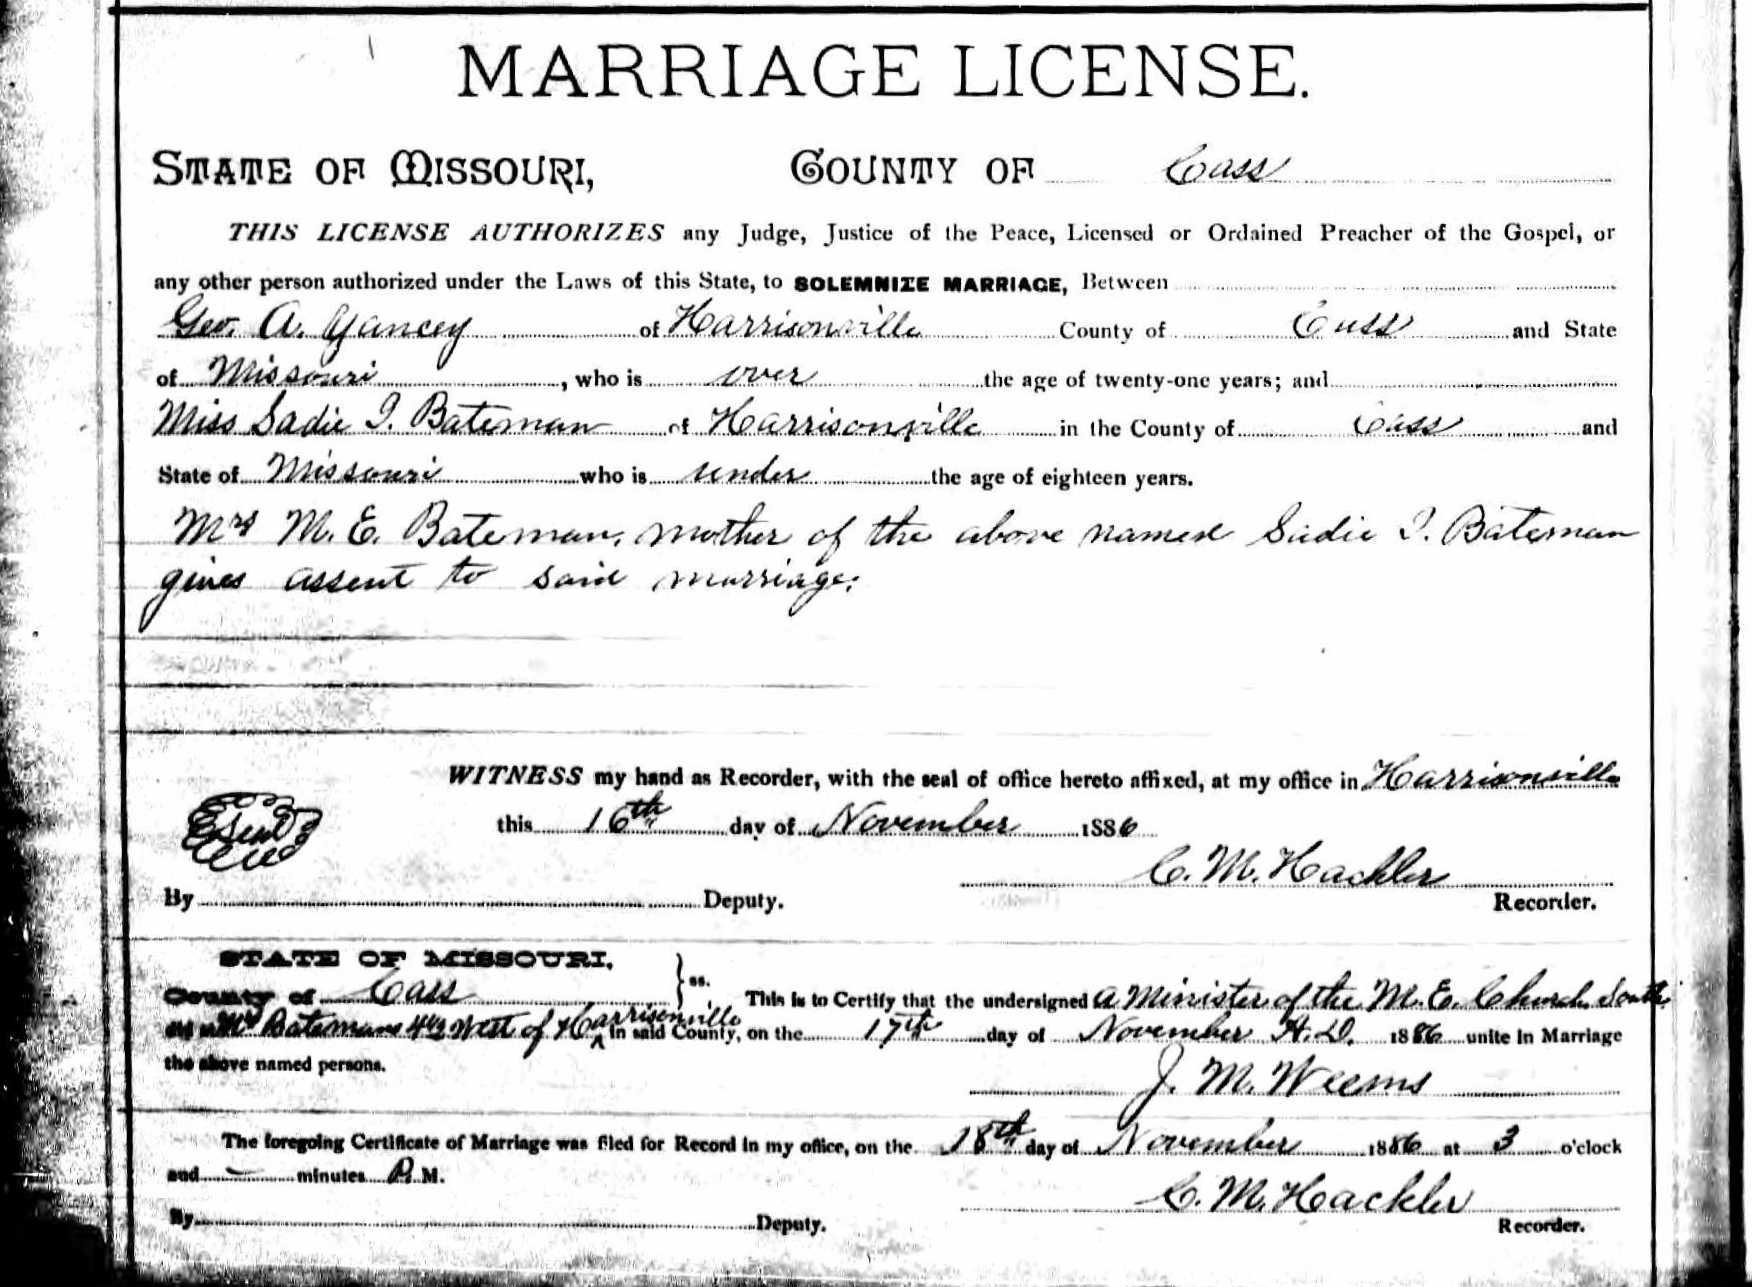 MARRIAGE LICENSE.
STATE OF MISSOURI, COUNTY OF Cass
THIS LICENSE AUTHORIZES any Judge, Justice of the Peace, Licensed or Ordained Preacher of the Gospel, or
any other person authorized under the Laws of this State, to SOLEMNIZE MARRIAGE, Between
Geo. A. Yancey of Harrisonville County of Cass and State
of Missouri, who is over the age of twenty-one years; and
Miss Sadie I. Bateman of Harrisonville in the County of Cass and
State of Missouri who is under the age of eighteen years.
Mrs M. E. Bateman, mother of the above named Sadie I. Bateman
gives assent to said marriage.
WITNESS my hand as Recorder, with the seal of office hereto affixed, at my office in Harrisonville
Seal this 16th day of November 1886
C. M. Hackler
By Deputy. Recorder.
STATE OF MISSOURI,
County of Cass ss. This is to Certify that the undersigned a Minister of the M. E. Church South
Batemans West of Harrisonville in said County, on the 17th day of November A. D. 1886 unite in Marriage
the above named persons.
J. M. Weems
The foregoing Certificate of Marriage was filed for Record in my office, on the 18th day of November 1886 at 3 o'clock
and — minutes P. M.
C. M. Hackler
By Deputy. Recorder.